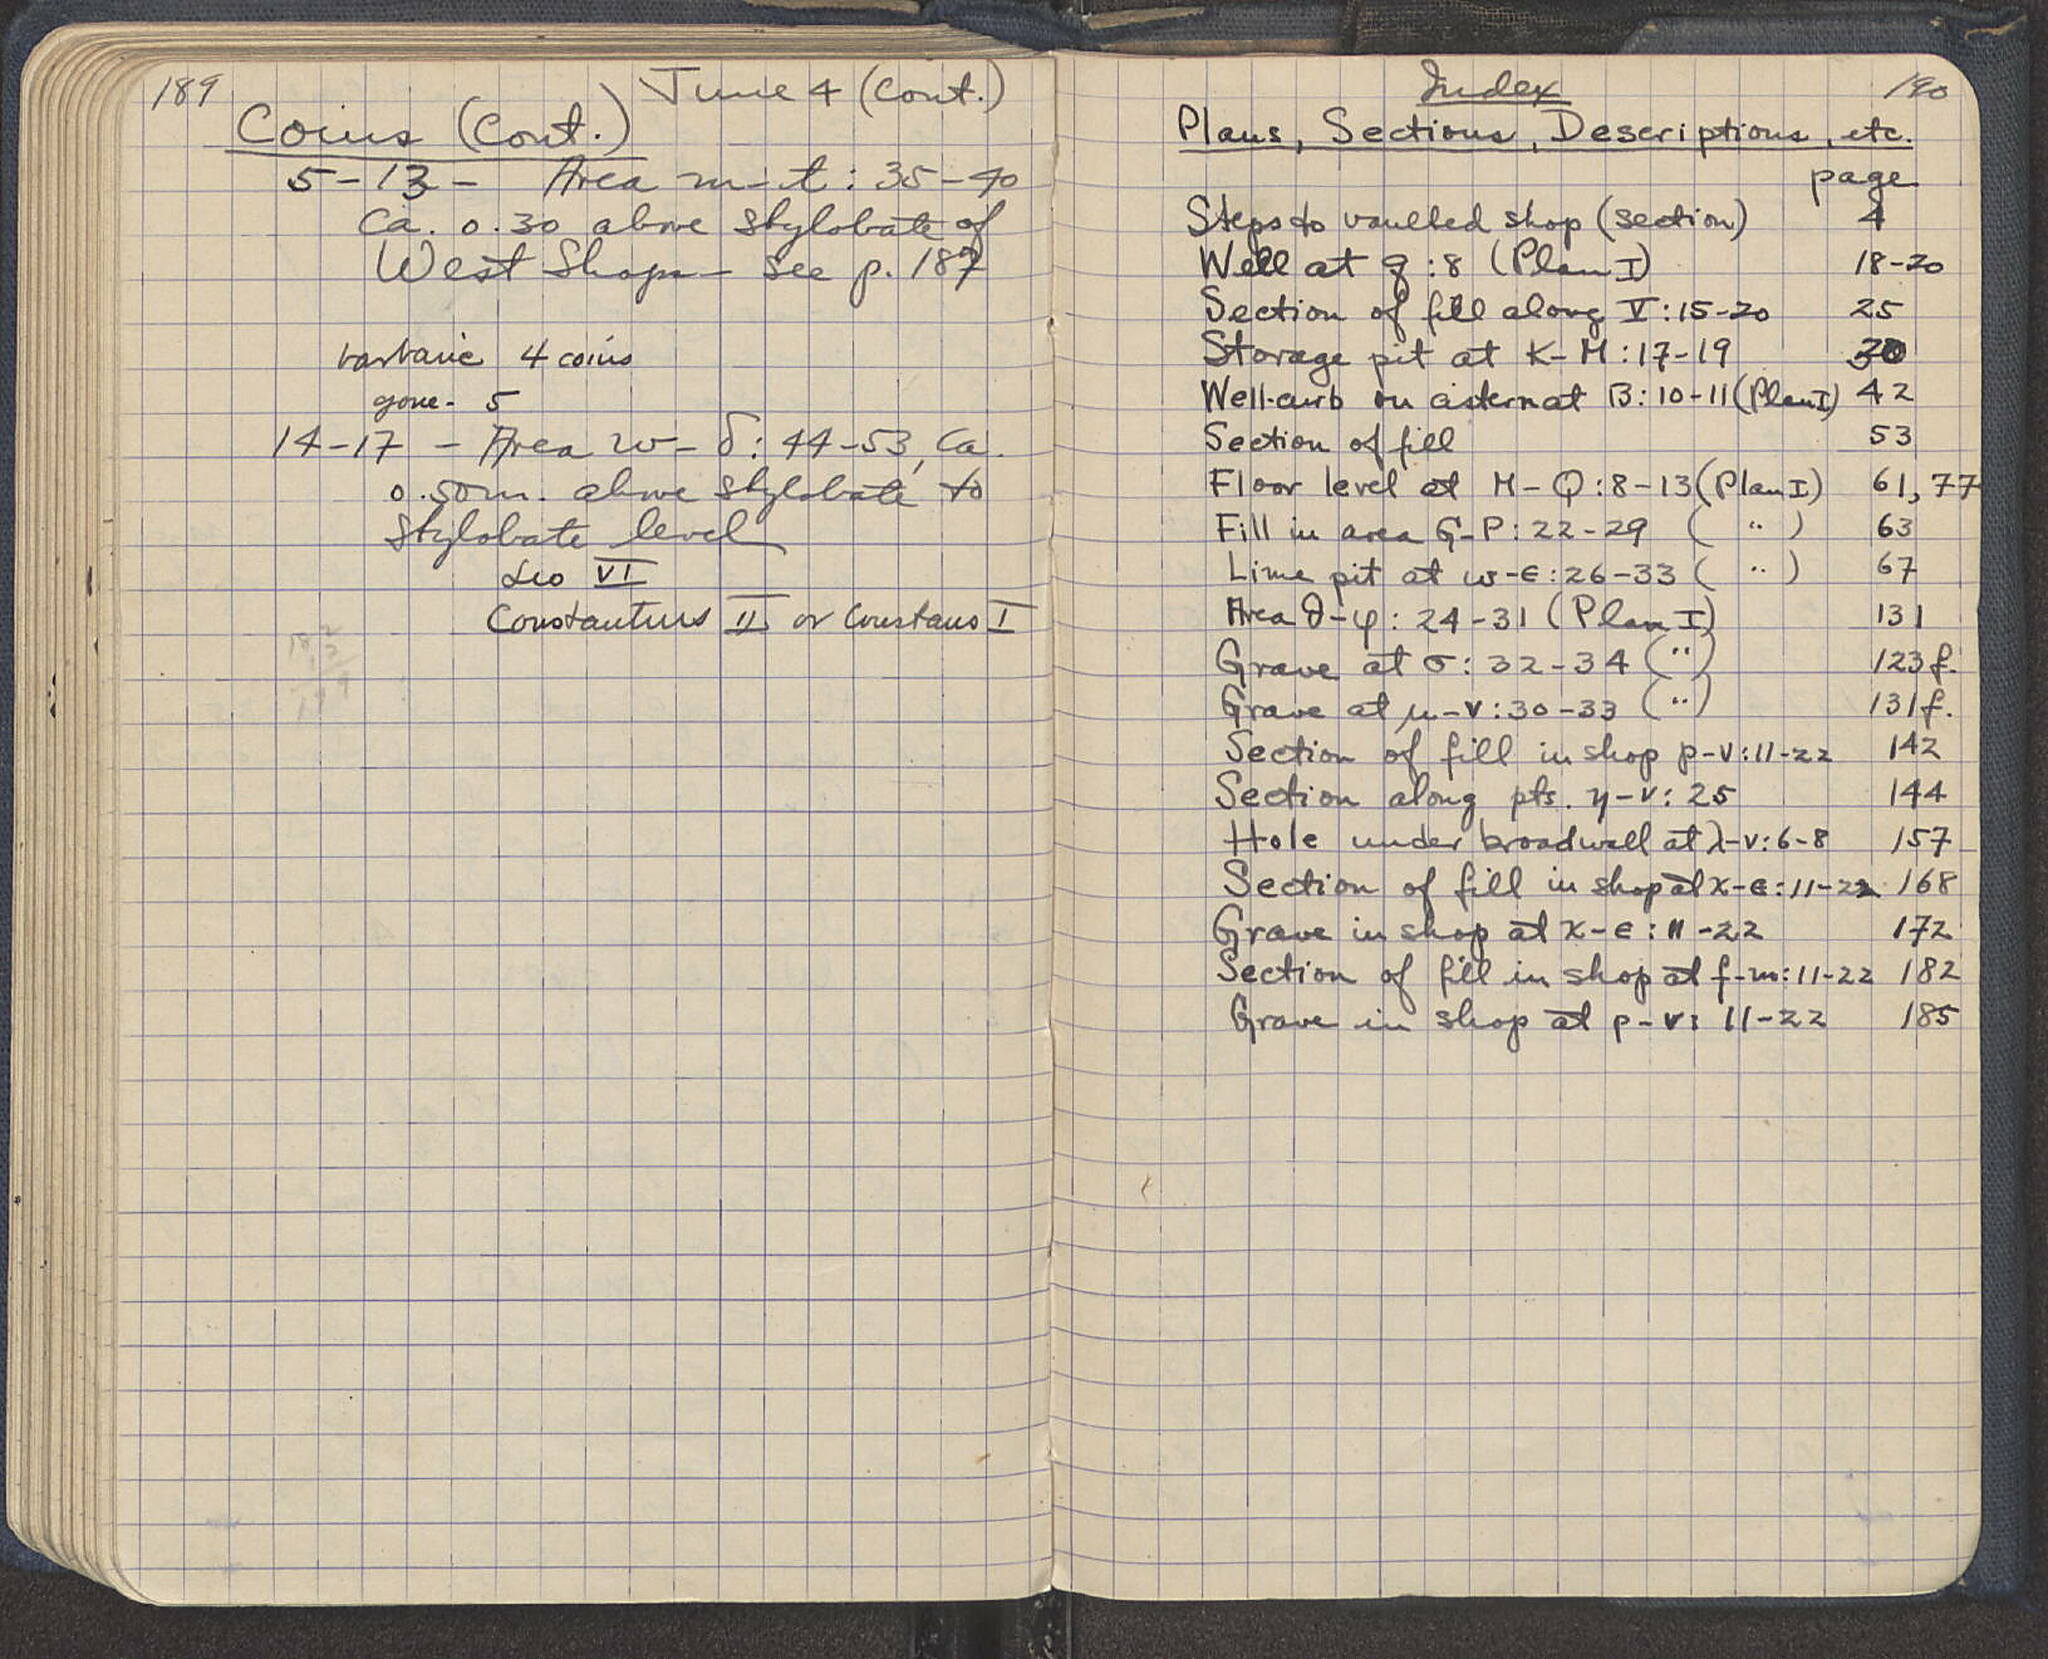 189
June 4 (Cont.)
Coins (Cont.)
5-13 - Area m-t: 35-40
Ca. 0.30 above stylobate of
West Shops - see p. 187
barbaric 4 coins
gone - 5
14-17 - Area w-δ: 44-53, Ca.
0.50m. above stylobate to
stylobate level
Leo VI
Constantius II or Constans I
Index
190
Plans, Sections, Descriptions, etc.
page
Steps to vaulted shop (section) 4
Well at q:8 (Plan I) 18-20
Section of fill along V:15-20 25
Storage pit at K-M:17-19 30
Well-curb on cistern at B:10-11 (Plan I) 42
Section of fill 53
Floor level at M-Q:8-13 (Plan I) 61, 77
Fill in area G-P: 22-29 ( " ) 63
Lime pit at w-ε:26-33 ( " ) 67
Area θ-φ: 24-31 (Plan I) 131
Grave at σ: 32-34 ( " ) 123f.
Grave at μ-ν:30-33 ( " ) 131f.
Section of fill in shop p-v:11-22 142
Section along pts. η-ν: 25 144
Hole under broad wall at λ-ν:6-8 157
Section of fill in shop at x-ε:11-22 168
Grave in shop at x-ε:11-22 172
Section of fill in shop at f-m:11-22 182
Grave in shop at p-v: 11-22 185